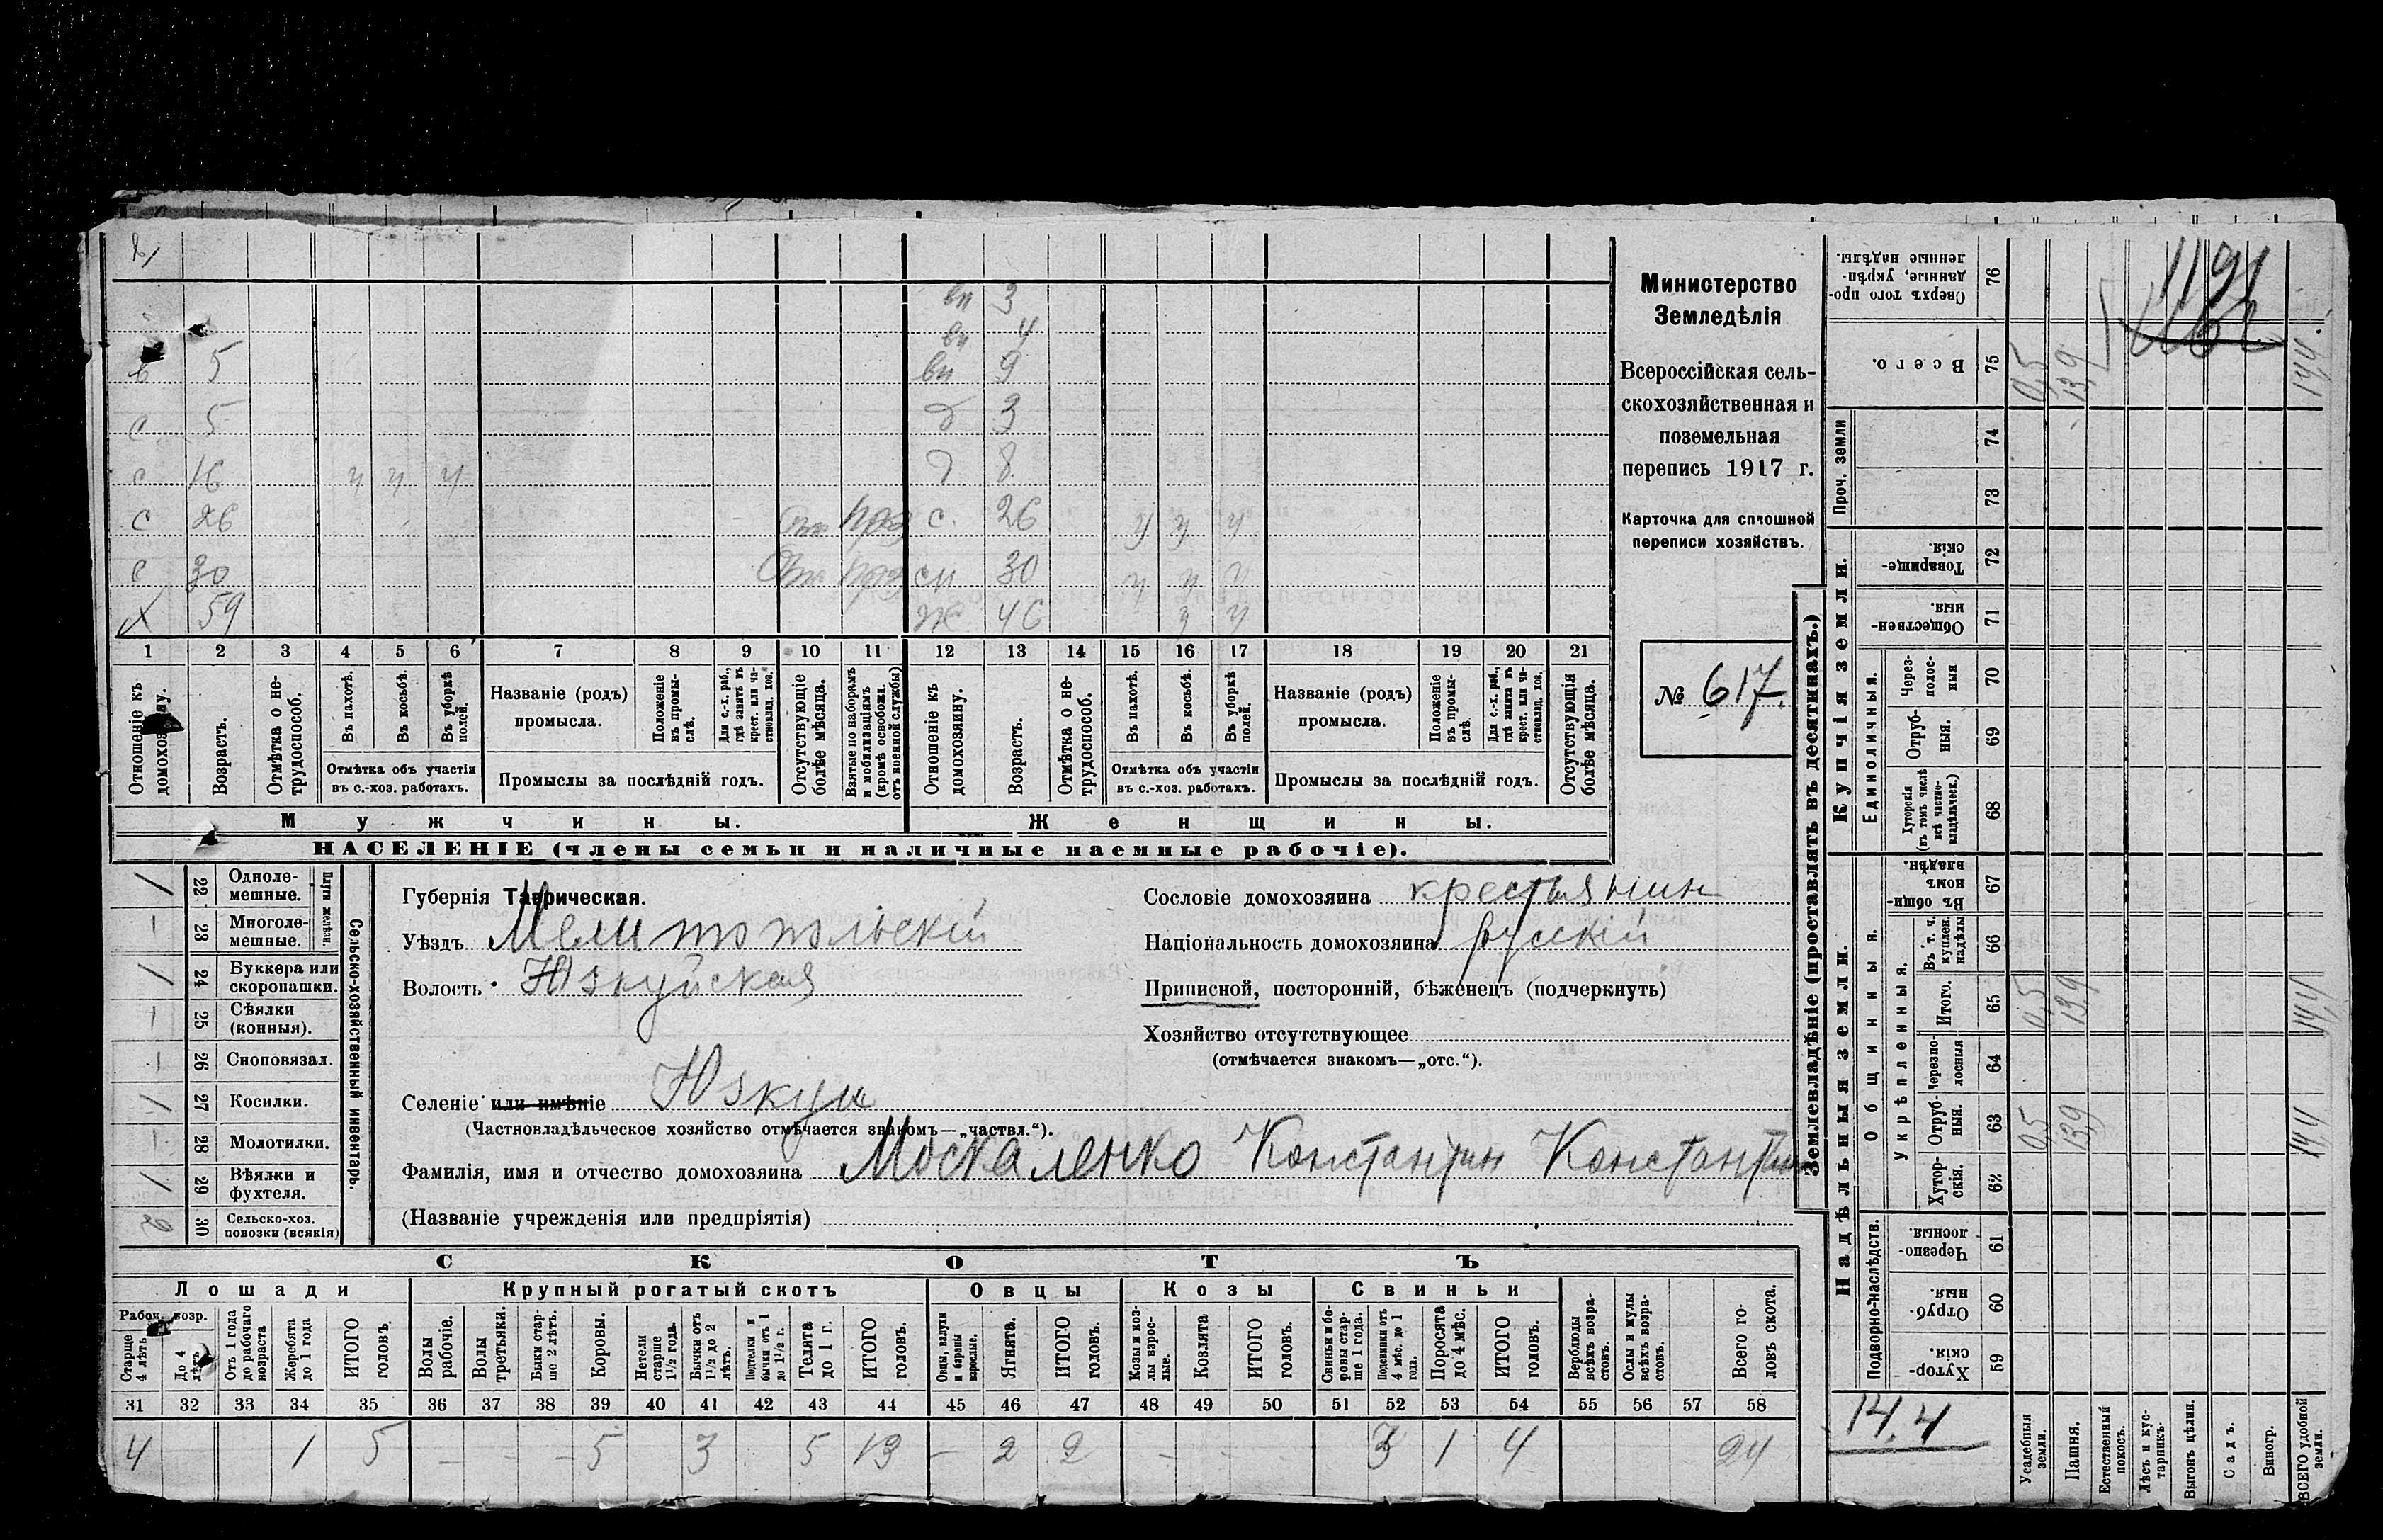 вн 3
вн 4
в 5 вн 9
с 5 д 3
с 16 ч ч ч д 8
с 26 Отп прз с. 26 ч ч ч
с 30 Отп прз сн 30 ч ч ч
х 59 ж 46 ч ч
1 2 3 4 5 6 7 8 9 10 11 12 13 14 15 16 17 18 19 20 21
Отношеніе къ домохозяину.
Возрастъ.
Отмѣтка о не-трудоспособ.
Въ пахотѣ.
Въ косьбѣ.
Въ уборкѣ полей.
Отмѣтка объ участіи въ с.-хоз. работахъ.
Названіе (родъ) промысла.
Положеніе въ промы-слѣ.
Для с.-х. раб., гдѣ занятъ въ крест. или ча-стновлад. хоз.
Промыслы за послѣдній годъ.
Отсутствующіе болѣе мѣсяца.
Взятые по наборамъ и мобилизаціямъ (кромѣ освобожд. отъ военной службы)
Отношеніе къ домохозяину.
Возрастъ.
Отмѣтка о не-трудоспособ.
Въ пахотѣ.
Въ косьбѣ.
Въ уборкѣ полей.
Отмѣтка объ участіи въ с.-хоз. работахъ.
Названіе (родъ) промысла.
Положеніе въ промы-слѣ.
Для с.-х. раб., гдѣ занятъ въ крест. или ча-стновлад. хоз.
Промыслы за послѣдній годъ.
Отсутствующія болѣе мѣсяца.
Мужчины. Женщины.
НАСЕЛЕНІЕ (члены семьи и наличные наемные рабочіе).
Министерство
Земледѣлія
Всероссійская сель-
скохозяйственная и
поземельная
перепись 1917 г.
Карточка для сплошной
переписи хозяйствъ.
№ 617.
Сельско-хозяйственный инвентарь.
Плуги желѣзн.
/ 22 Одноле-мешные.
— 23 Многоле-мешные.
/ 24 Буккера или скоропашки.
— 25 Сѣялки (конныя).
— 26 Сноповязал.
/ 27 Косилки.
— 28 Молотилки.
/ 29 Вѣялки и фухтеля.
2 30 Сельско-хоз. повозки (всякія)
Губернія Таврическая.
Уѣздъ Мелитопольскій
Волость Юзкуйская
Селеніе или имѣніе Юзкуи
(Частновладѣльческое хозяйство отмѣчается знакомъ—„частвл.“).
Фамилія, имя и отчество домохозяина Москаленко Константин Константин
(Названіе учрежденія или предпріятія)
Сословіе домохозяина крестьянин
Національность домохозяина русскій
Приписной, посторонній, бѣженецъ (подчеркнуть)
Хозяйство отсутствующее
(отмѣчается знакомъ—„отс.“).
СКОТЪ
Лошади Крупный рогатый скотъ Овцы Козы Свиньи
Рабоч. возр.
Старше 4 лѣтъ
До 4 лѣтъ
Отъ 1 года до рабочаго возраста
Жеребята до 1 года
ИТОГО головъ.
Волы рабочіе.
Волы третьяки.
Быки стар-ше 2 лѣтъ.
Коровы.
Нетели старше 1½ года.
Бычки отъ 1½ до 2 лѣтъ.
Подтелки и бычки отъ 1 до 1½ г.
Телята до 1 г.
ИТОГО головъ.
Овцы, валухи и бараны взрослые.
Ягнята.
ИТОГО головъ.
Козы и коз-лы взрос-лые.
Козлята
ИТОГО головъ.
Свиньи и бо-ровы стар-ше 1 года.
Подсвинки отъ 4 мѣс. до 1 года.
Поросята до 4 мѣс.
ИТОГО головъ.
Верблюды всѣхъ возра-стовъ.
Ослы и мулы всѣхъ возра-стовъ.
Всего го-ловъ скота.
31 32 33 34 35 36 37 38 39 40 41 42 43 44 45 46 47 48 49 50 51 52 53 54 55 56 57 58
4 1 5 – – – 5 3 5 13 – 2 2 – – 3 1 4 24
Землевладѣніе (проставлять въ десятинахъ.)
Надѣльныя земли. Купчія земли. Проч. земли
Подворно-наслѣдств.
Общинныя.
Укрѣпленныя.
Единоличныя.
Сверхъ того про-данные, укрѣп-ленные надѣлы. 76
Всего. 75 0,5 13,9 14,4.
74
73
Товарище-скія. 72
Обществен-ныя. 71
Через-полос-ныя 70
Отруб-ныя. 69
Хуторскія (въ томъ числѣ всѣ частно-владѣльческ.) 68
Въ общин-номъ владѣн. 67
Въ т. ч. куплен. надѣлы 66
Итого. 65 0,5 13,9 14,4
Черезпо-лосныя 64
Отруб-ныя. 63 0,5 13,9 14,4
Хутор-скія. 62
Черезпо-лосныя 61
Отруб-ныя. 60
Хутор-скія. 59
1191
14.4
Усадебныя земли.
Пашня.
Естественный покосъ.
Лѣсъ и кус-тарникъ.
Выгонъ цѣлин.
Садъ.
Виногр.
ВСЕГО удобной земли.